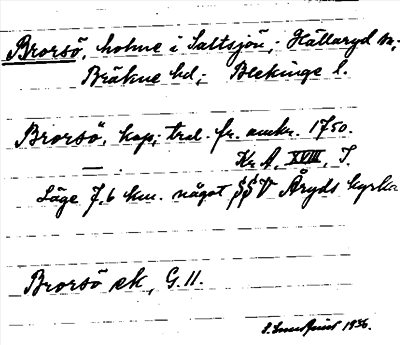 Brorsö, holme i Saltsjön; Hällaryd sn;
Bräkne hd; Blekinge l.
Brorsö, kop; tral. fr. omkr. 1750.
— . Kr. A. XVIII, I.
Läge 7,6 km. något SSV Åryds kyrka
Brorsö ek, G. 11.
1936.